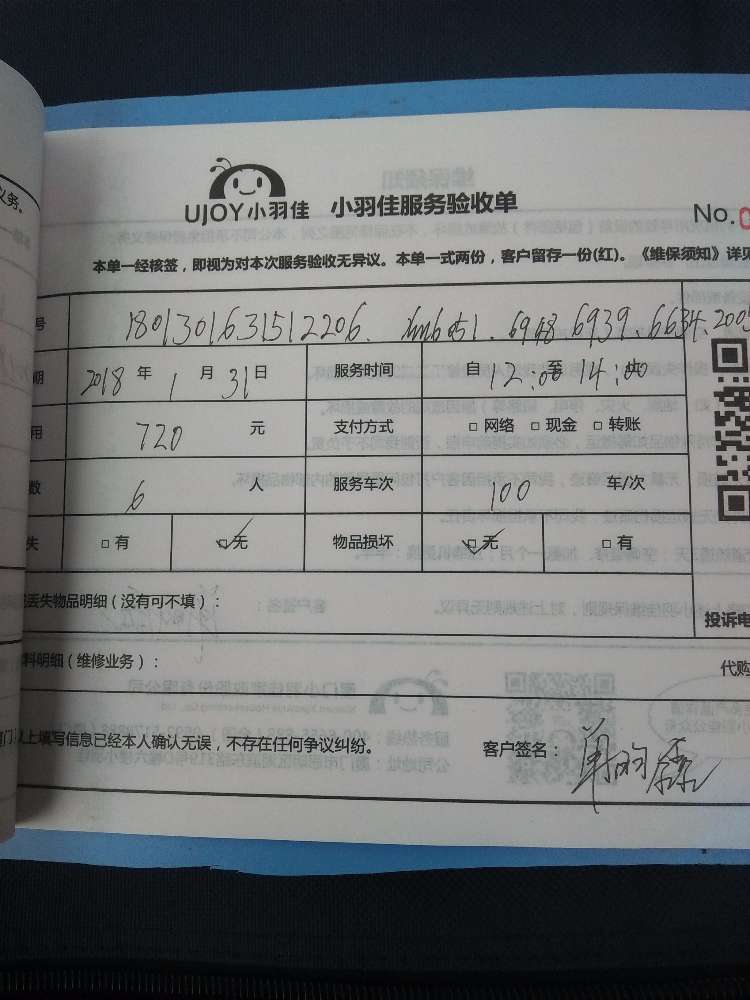 义务。
UJOY小羽佳 小羽佳服务验收单
No.0
本单一经核签，即视为对本次服务验收无异议。本单一式两份，客户留存一份(红)。《维保须知》详见
号 180130163151 2206. 6968.6939.6634.200
期 2018 年 1 月 31 日 服务时间 自 12:00 至 14:00
用 720 元 支付方式 □ 网络 □ 现金 □ 转账
数 6 人 服务车次 100 车/次
失 □ 有 □ 无 物品损坏 □ 无 □ 有
丢失物品明细（没有可不填）：
投诉电
料明细（维修业务）：
代购
以上填写信息已经本人确认无误，不存在任何争议纠纷。 客户签名：